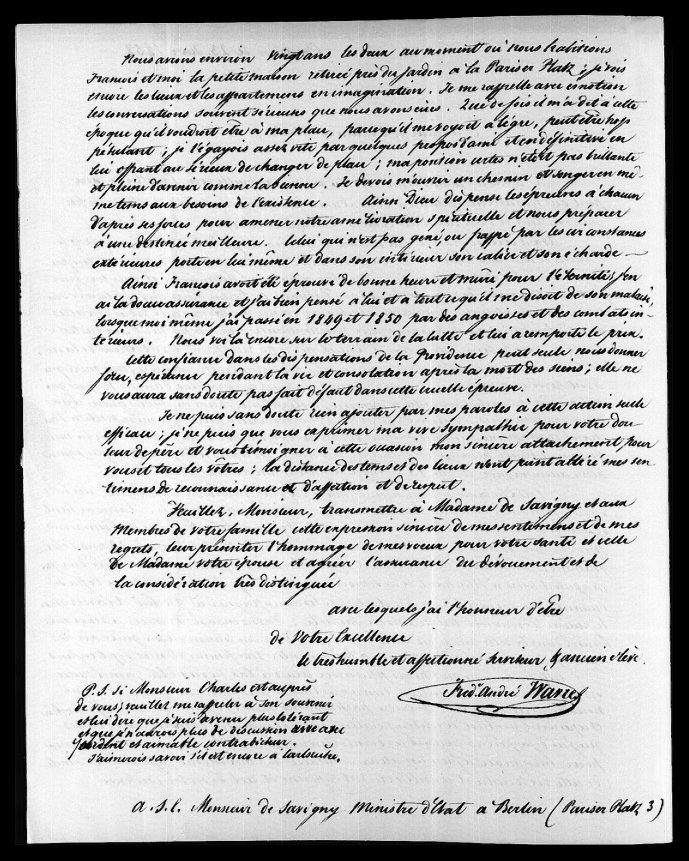 Nous avions environ vingt ans les deux au moment où nous habitions
François et moi la petite maison retirée près du Jardin à la Pariser Platz ; je vois
encore les lieux et les appartemens en imagination. Je me rappelle avec émotion
les conversations souvent sérieuses que nous avons eues. Que de fois il m'a dit à cette
époque qu'il voudroit être à ma place, parcequ'il me voyoit allègre, peut être trop
pétulant ; je l'égayois assez vite par quelques propos d'ami et en définitive en
lui offrant au sérieux de changer de place ; ma position certes n'étoit pas brillante
et pleine d'avenir comme la sienne. Je devois m'ouvrir un chemin et songer en mê-
me tems aux besoins de l'existence. Ainsi Dieu dispense les épreuves à chacun
d'après ses forces pour amener notre amélioration spirituelle et nous préparer
à une destinée meilleure. Celui qui n'est pas gené, ou frappé par les circonstances
extérieures porte en lui même et dans son intérieur son calice et son écharde —
Ainsi François avoit été éprouvé de bonne heure et mûri pour l'éternité ; j'en
ai la douce assurance et j'ai bien pensé à lui et à tout ce qu'il me disoit de son malaise,
lorsque moi même j'ai passé en 1849 et 1850 par des angoisses et des combats in-
térieurs. Nous voilà encore sur le terrain de la lutte et lui a remporté le prix.
Cette confiance dans les dispensations de la Providence peut seule nous donner
force, espérance pendant la vie et consolation après la mort des siens ; elle ne
vous aura sans doute pas fait défaut dans cette cruelle épreuve.
Je ne puis sans doute rien ajouter par mes paroles à cette action seule
efficace ; je ne puis que vous exprimer ma vive sympathie pour votre dou
leur de père et vous témoigner à cette occasion mon sincère attachement pour
vous et tous les vôtres ; la distance des tems et des lieux n'ont point altéré mes sen
timens de reconnaissance et d'affection et de respect.
Veuillez, Monsieur, transmettre à Madame de Savigny et aux
Membres de votre famille cette expression sincère de mes sentimens et de mes
regrets, leur présenter l'hommage de mes voeux pour votre santé et celle
de Madame votre épouse et agréer l'assurance du dévouement et de
la considération très distinguée
avec lesquels j'ai l'honneur d'être
de Votre Excellence
le très humble et affectionné serviteur & ancien élève.
Fréd. André
P.S. Si Monsieur Charles est auprès
de vous, veuillez me rappeler à son souvenir
et lui dire que je suis devenu plus tolérant
et que je n'aurois plus de discussion avec ave
ardent et aimable contradicteur.
J'aimerois savoir s'il est encore à Carlsruhe.
A. S. E. Monsieur de Savigny Ministre d'Etat à Berlin (Pariser Platz 3)